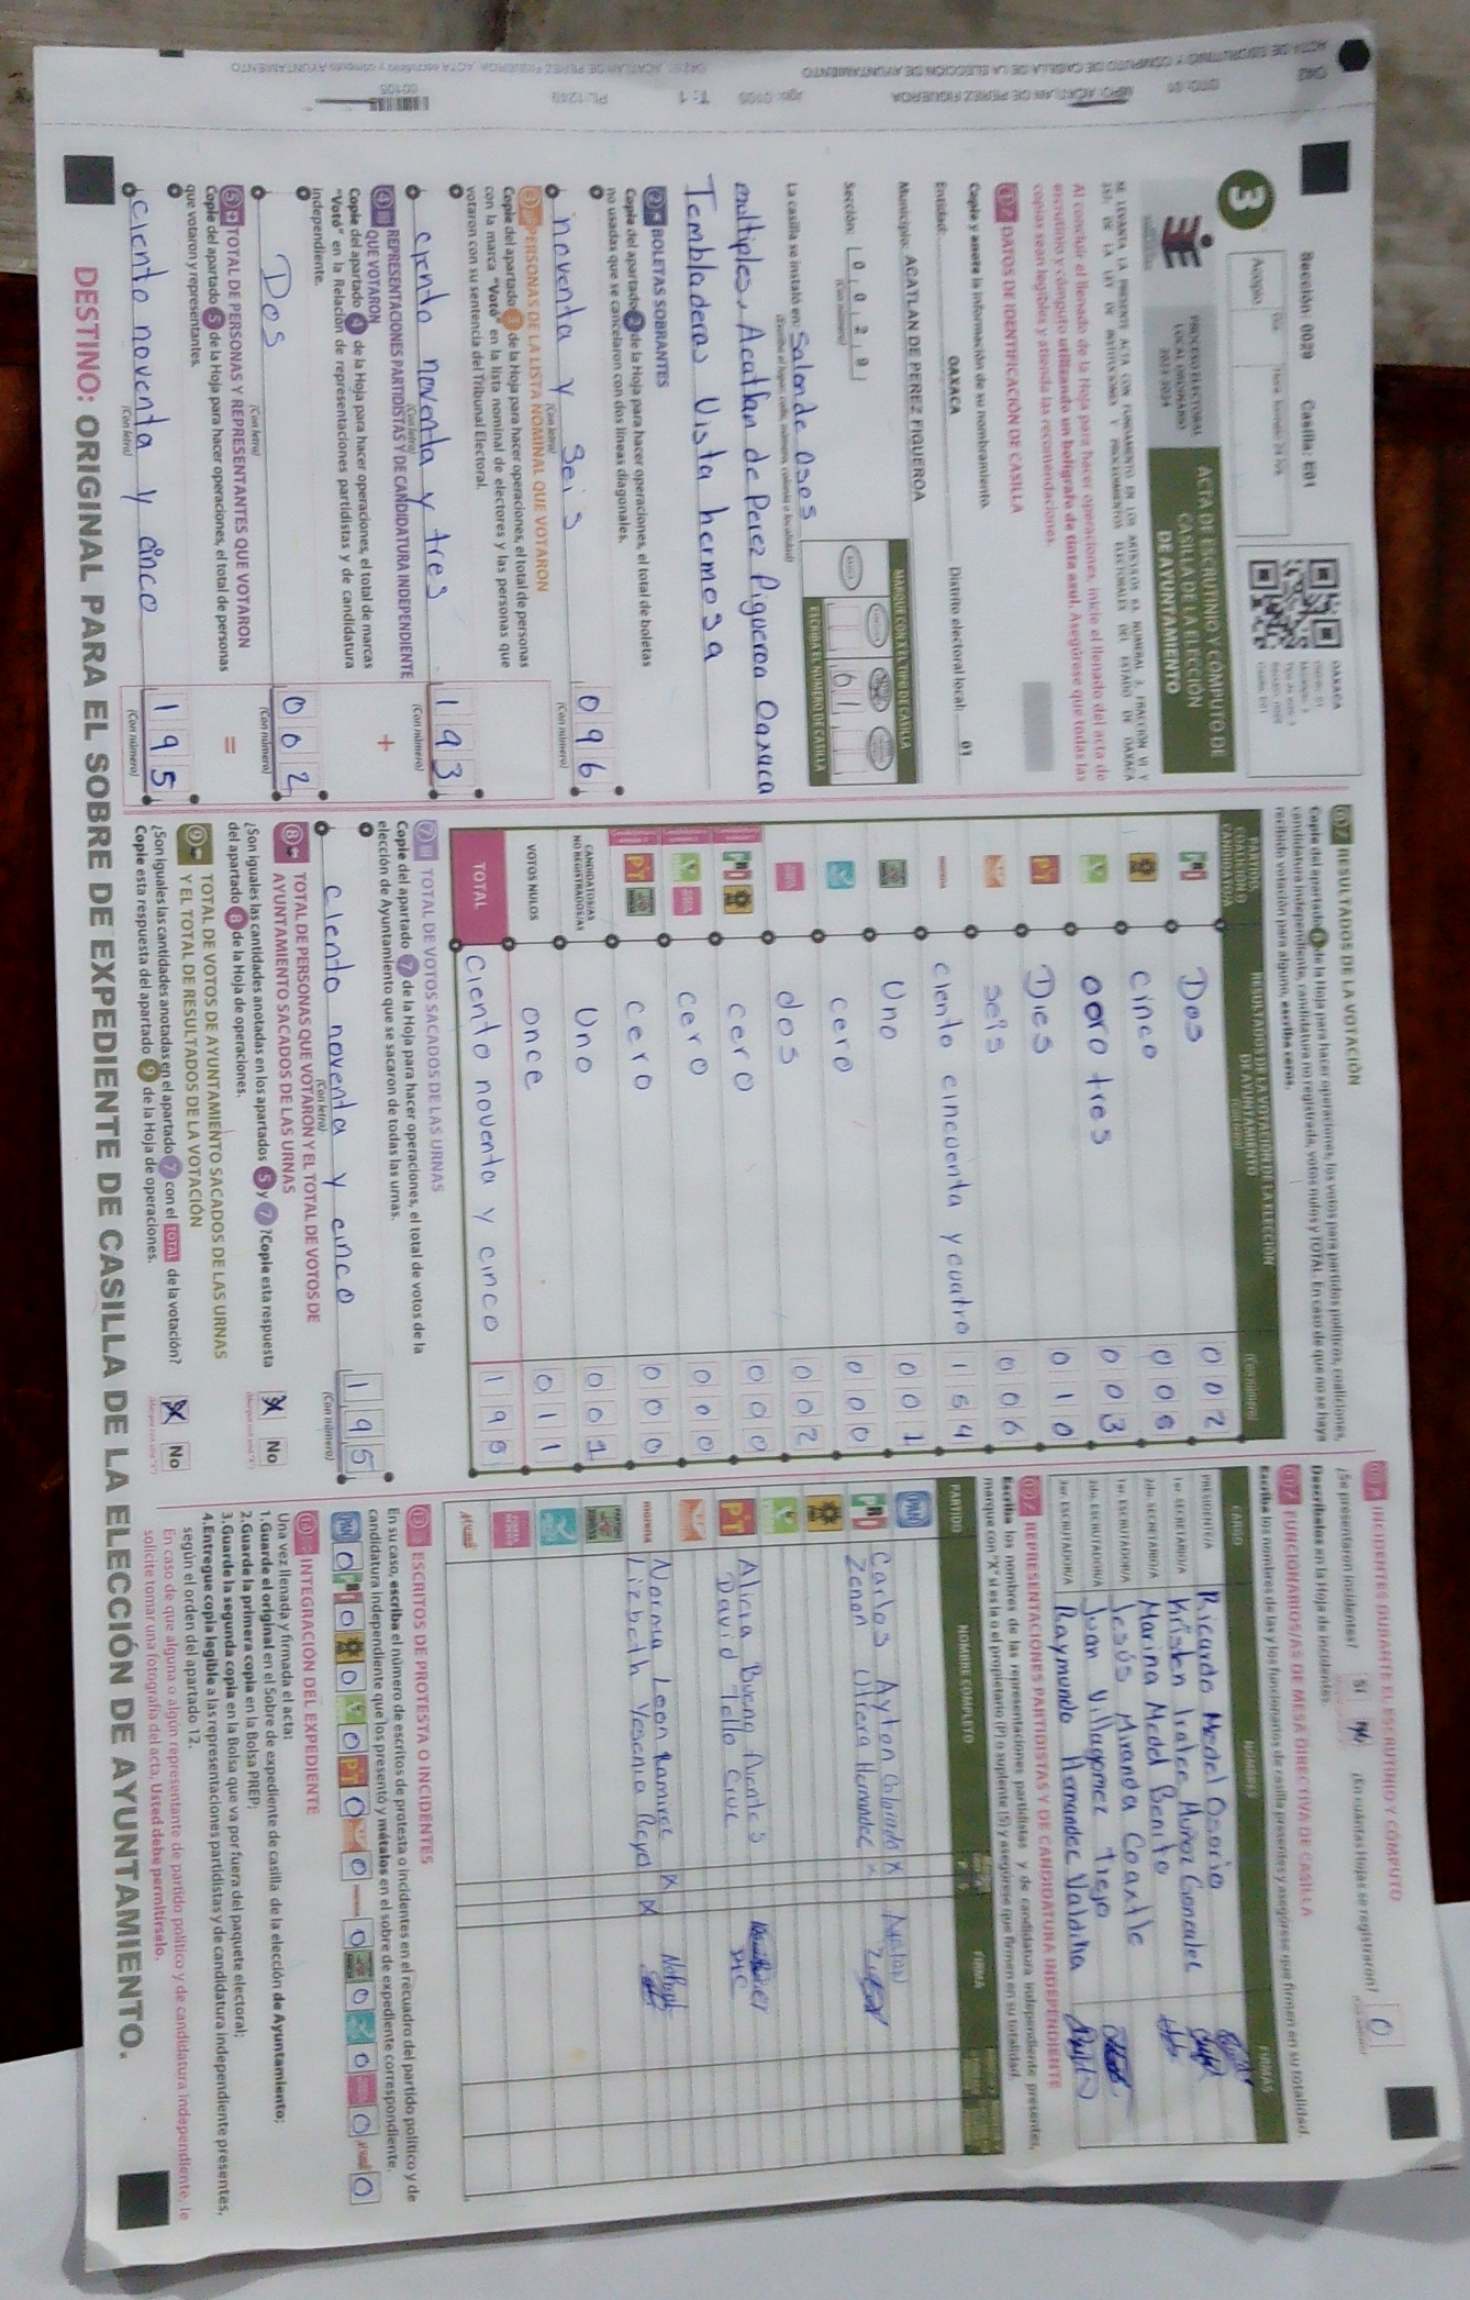 Sección: 0029 Casilla: E01
3
Acopio
PROCESO ELECTORAL
LOCAL ORDINARIO
2023-2024
ACTA DE ESCRUTINIO Y CÓMPUTO DE
CASILLA DE LA ELECCIÓN
DE AYUNTAMIENTO
OAXACA
Al concluir el llenado de la Hoja para hacer operaciones, inicie el llenado del acta de
escrutinio y cómputo utilizando un bolígrafo de tinta azul. Asegúrese que todas las
copias sean legibles y atienda las recomendaciones.
1 DATOS DE IDENTIFICACIÓN DE CASILLA
Copie y anote la información de su nombramiento.
Entidad: OAXACA Distrito electoral local: 01
Municipio: ACATLAN DE PEREZ FIGUEROA
Sección: 0 0 2 9
(Con número)
MARQUE CON X EL TIPO DE CASILLA
01
ESCRIBA EL NÚMERO DE CASILLA
La casilla se instaló en: Salon de Usos
multiples, Acatlan de Perez Figueroa Oaxaca
Tembladeras Vista hermosa
2 BOLETAS SOBRANTES
Copie del apartado 2 de la Hoja para hacer operaciones, el total de boletas
no usadas que se cancelaron con dos líneas diagonales.
noventa y seis 096
(Con letra) (Con número)
3 PERSONAS DE LA LISTA NOMINAL QUE VOTARON
Copie del apartado 3 de la Hoja para hacer operaciones, el total de personas
con la marca "Votó" en la lista nominal de electores y las personas que
votaron con su sentencia del Tribunal Electoral.
ciento noventa y tres 193
(Con letra) (Con número)
4 REPRESENTACIONES PARTIDISTAS Y DE CANDIDATURA INDEPENDIENTE
QUE VOTARON
Copie del apartado 4 de la Hoja para hacer operaciones, el total de marcas
"Votó" en la Relación de representaciones partidistas y de candidatura
independiente.
+
Dos 002
(Con letra) (Con número)
5 TOTAL DE PERSONAS Y REPRESENTANTES QUE VOTARON
Copie del apartado 5 de la Hoja para hacer operaciones, el total de personas
que votaron y representantes.
=
ciento noventa y cinco 195
(Con letra) (Con número)
6 RESULTADOS DE LA VOTACIÓN
Copie del apartado 6 de la Hoja para hacer operaciones, los votos para partidos políticos, coaliciones,
candidatura independiente, candidatura no registrada, votos nulos y TOTAL. En caso de que no se haya
recibido votación para alguno, escriba ceros.
PARTIDO, COALICIÓN O CANDIDATURA
RESULTADOS DE LA VOTACIÓN DE LA ELECCIÓN
DE AYUNTAMIENTO
(Con letra) (Con número)
PRD Dos 002
cinco 005
cero tres 003
PT Dies 010
seis 006
morena ciento cincuenta y cuatro 154
Uno 001
cero 000
dos 002
PRD cero 000
cero 000
PT cero 000
CANDIDATOS/AS
NO REGISTRADOS/AS Uno 001
VOTOS NULOS once 011
TOTAL Ciento noventa y cinco 195
7 TOTAL DE VOTOS SACADOS DE LAS URNAS
Copie del apartado 7 de la Hoja para hacer operaciones, el total de votos de la
elección de Ayuntamiento que se sacaron de todas las urnas.
ciento noventa y cinco 195
(Con letra) (Con número)
8 TOTAL DE PERSONAS QUE VOTARON Y EL TOTAL DE VOTOS DE
AYUNTAMIENTO SACADOS DE LAS URNAS
¿Son iguales las cantidades anotadas en los apartados 5 y 7? Copie esta respuesta
del apartado 8 de la Hoja de operaciones.
X No
9 TOTAL DE VOTOS DE AYUNTAMIENTO SACADOS DE LAS URNAS
Y EL TOTAL DE RESULTADOS DE LA VOTACIÓN
¿Son iguales las cantidades anotadas en el apartado 7 con el TOTAL de la votación?
Copie esta respuesta del apartado 9 de la Hoja de operaciones.
X No
10 INCIDENTES DURANTE EL ESCRUTINIO Y CÓMPUTO
¿Se presentaron incidentes? Sí No ¿En cuántas Hojas se registraron? 0
Descríbalos en la Hoja de incidentes.
11 FUNCIONARIOS/AS DE MESA DIRECTIVA DE CASILLA
Escriba los nombres de las y los funcionarios de casilla presentes y asegúrese que firmen en su totalidad.
CARGO NOMBRES FIRMAS
PRESIDENTE/A Ricardo Medel Osorio
1er. SECRETARIO/A Kristen Muñoz Gonzalez
2do. SECRETARIO/A Marina Medel Benito
1er. ESCRUTADOR/A Jesús Miranda Coantle
2do. ESCRUTADOR/A Juan Villagomez Trejo
3er. ESCRUTADOR/A Raymundo Hernandez Valdivia
12 REPRESENTACIONES PARTIDISTAS Y DE CANDIDATURA INDEPENDIENTE
Escriba los nombres de las representaciones partidistas y de candidatura independiente presentes,
marque con "X" si es la o el propietario (P) o suplente (S) y asegúrese que firmen en su totalidad.
PARTIDO NOMBRE COMPLETO FIRMA
PAN Carlos X
PRD Zenon Hernandez X
PT Alicia Bueno
David Tello Cruz
morena Norma Leon Ramirez X
Lizbeth Yesenia Reyo X
13 ESCRITOS DE PROTESTA O INCIDENTES
En su caso, escriba el número de escritos de protesta o incidentes en el recuadro del partido político y de
candidatura independiente que los presentó y métalos en el sobre de expediente correspondiente.
PAN 0 PRD 0 0 0 PT 0 0 0 0 0 0 0
INTEGRACIÓN DEL EXPEDIENTE
Una vez llenada y firmada el acta:
1. Guarde el original en el Sobre de expediente de casilla de la elección de Ayuntamiento;
2. Guarde la primera copia en la Bolsa PREP;
3. Guarde la segunda copia en la Bolsa que va por fuera del paquete electoral;
4. Entregue copia legible a las representaciones partidistas y de candidatura independiente presentes,
según el orden del apartado 12.
En caso de que alguna o algún representante de partido político y de candidatura independiente, le
solicite tomar una fotografía del acta, Usted debe permitírselo.
DESTINO: ORIGINAL PARA EL SOBRE DE EXPEDIENTE DE CASILLA DE LA ELECCIÓN DE AYUNTAMIENTO.